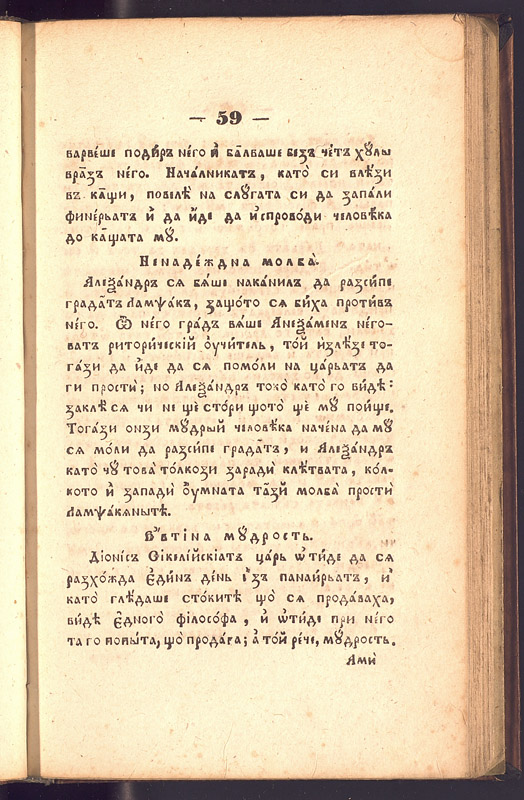 — 59 —
варве́ше поди́ръ не́го и҆ ба̑лваше безъ че́тъ хꙋ̑лы
вра̑зъ не́го. Нача́лникатъ, като̀ си влѣ́зи
въ ка̑щи, повелѣ̀ на слꙋ̑гата си да запа́ли
фине́рьатъ и҆ да и҆́де да и҆спрово́ди человѣ́ка
до ка̑щата мꙋ̀.
Ненаде́ждна молба̀.
Алеѯа́ндръ сѧ бѧ́ше накани́лъ да разси́пе
града̑тъ Ламѱа́къ, защо́то сѧ би́ха проти́въ
не́го. Ѿ не́го гра́дъ бѧ́ше Анеѯа́менъ не́го-
ватъ ритори́ческій ᲂу҆чи́тель, то́й и҆злѣ́зе то-
га́зи да и҆́де да сѧ помо́ли на ца́рьатъ да
ги простѝ; но Алеѯа́ндръ токо̀ като̀ го ви́дѣ:
заклѣ̀ сѧ чи не щѐ сто́ри щото̀ щѐ мꙋ̀ пои́ще.
Тога́зи онзи мꙋ́дрый человѣ́ка наче́на да мꙋ̀
сѧ мо́ли да разси́пе града̑тъ, и Алеѯа́ндръ
като̀ чꙋ̀ това̀ то́лкози зарадѝ клѣ́твата, ко́л-
кото и҆ западѝ ᲂу҆́мната та̑зй молба̀ простѝ
Ламѱа́кѧнытѣ.
Мꙋ́дрость.
Діоні́съ Сікелі́йскіатъ ца́рь ѿи́де да сѧ
разхо́жда є҆ди́нъ де́нь і҆зъ панаи́рьатъ, и҆
като̀ глѣ́даше сто́китѣ що̀ сѧ прода́ваха,
ви́дѣ є҆́дного фі́лосо́фа, и҆ ѿи́де при не́го
та го попы́та, що̀ прода́ва; а҆ то́й ре́че, мꙋ́дрость.
Амѝ